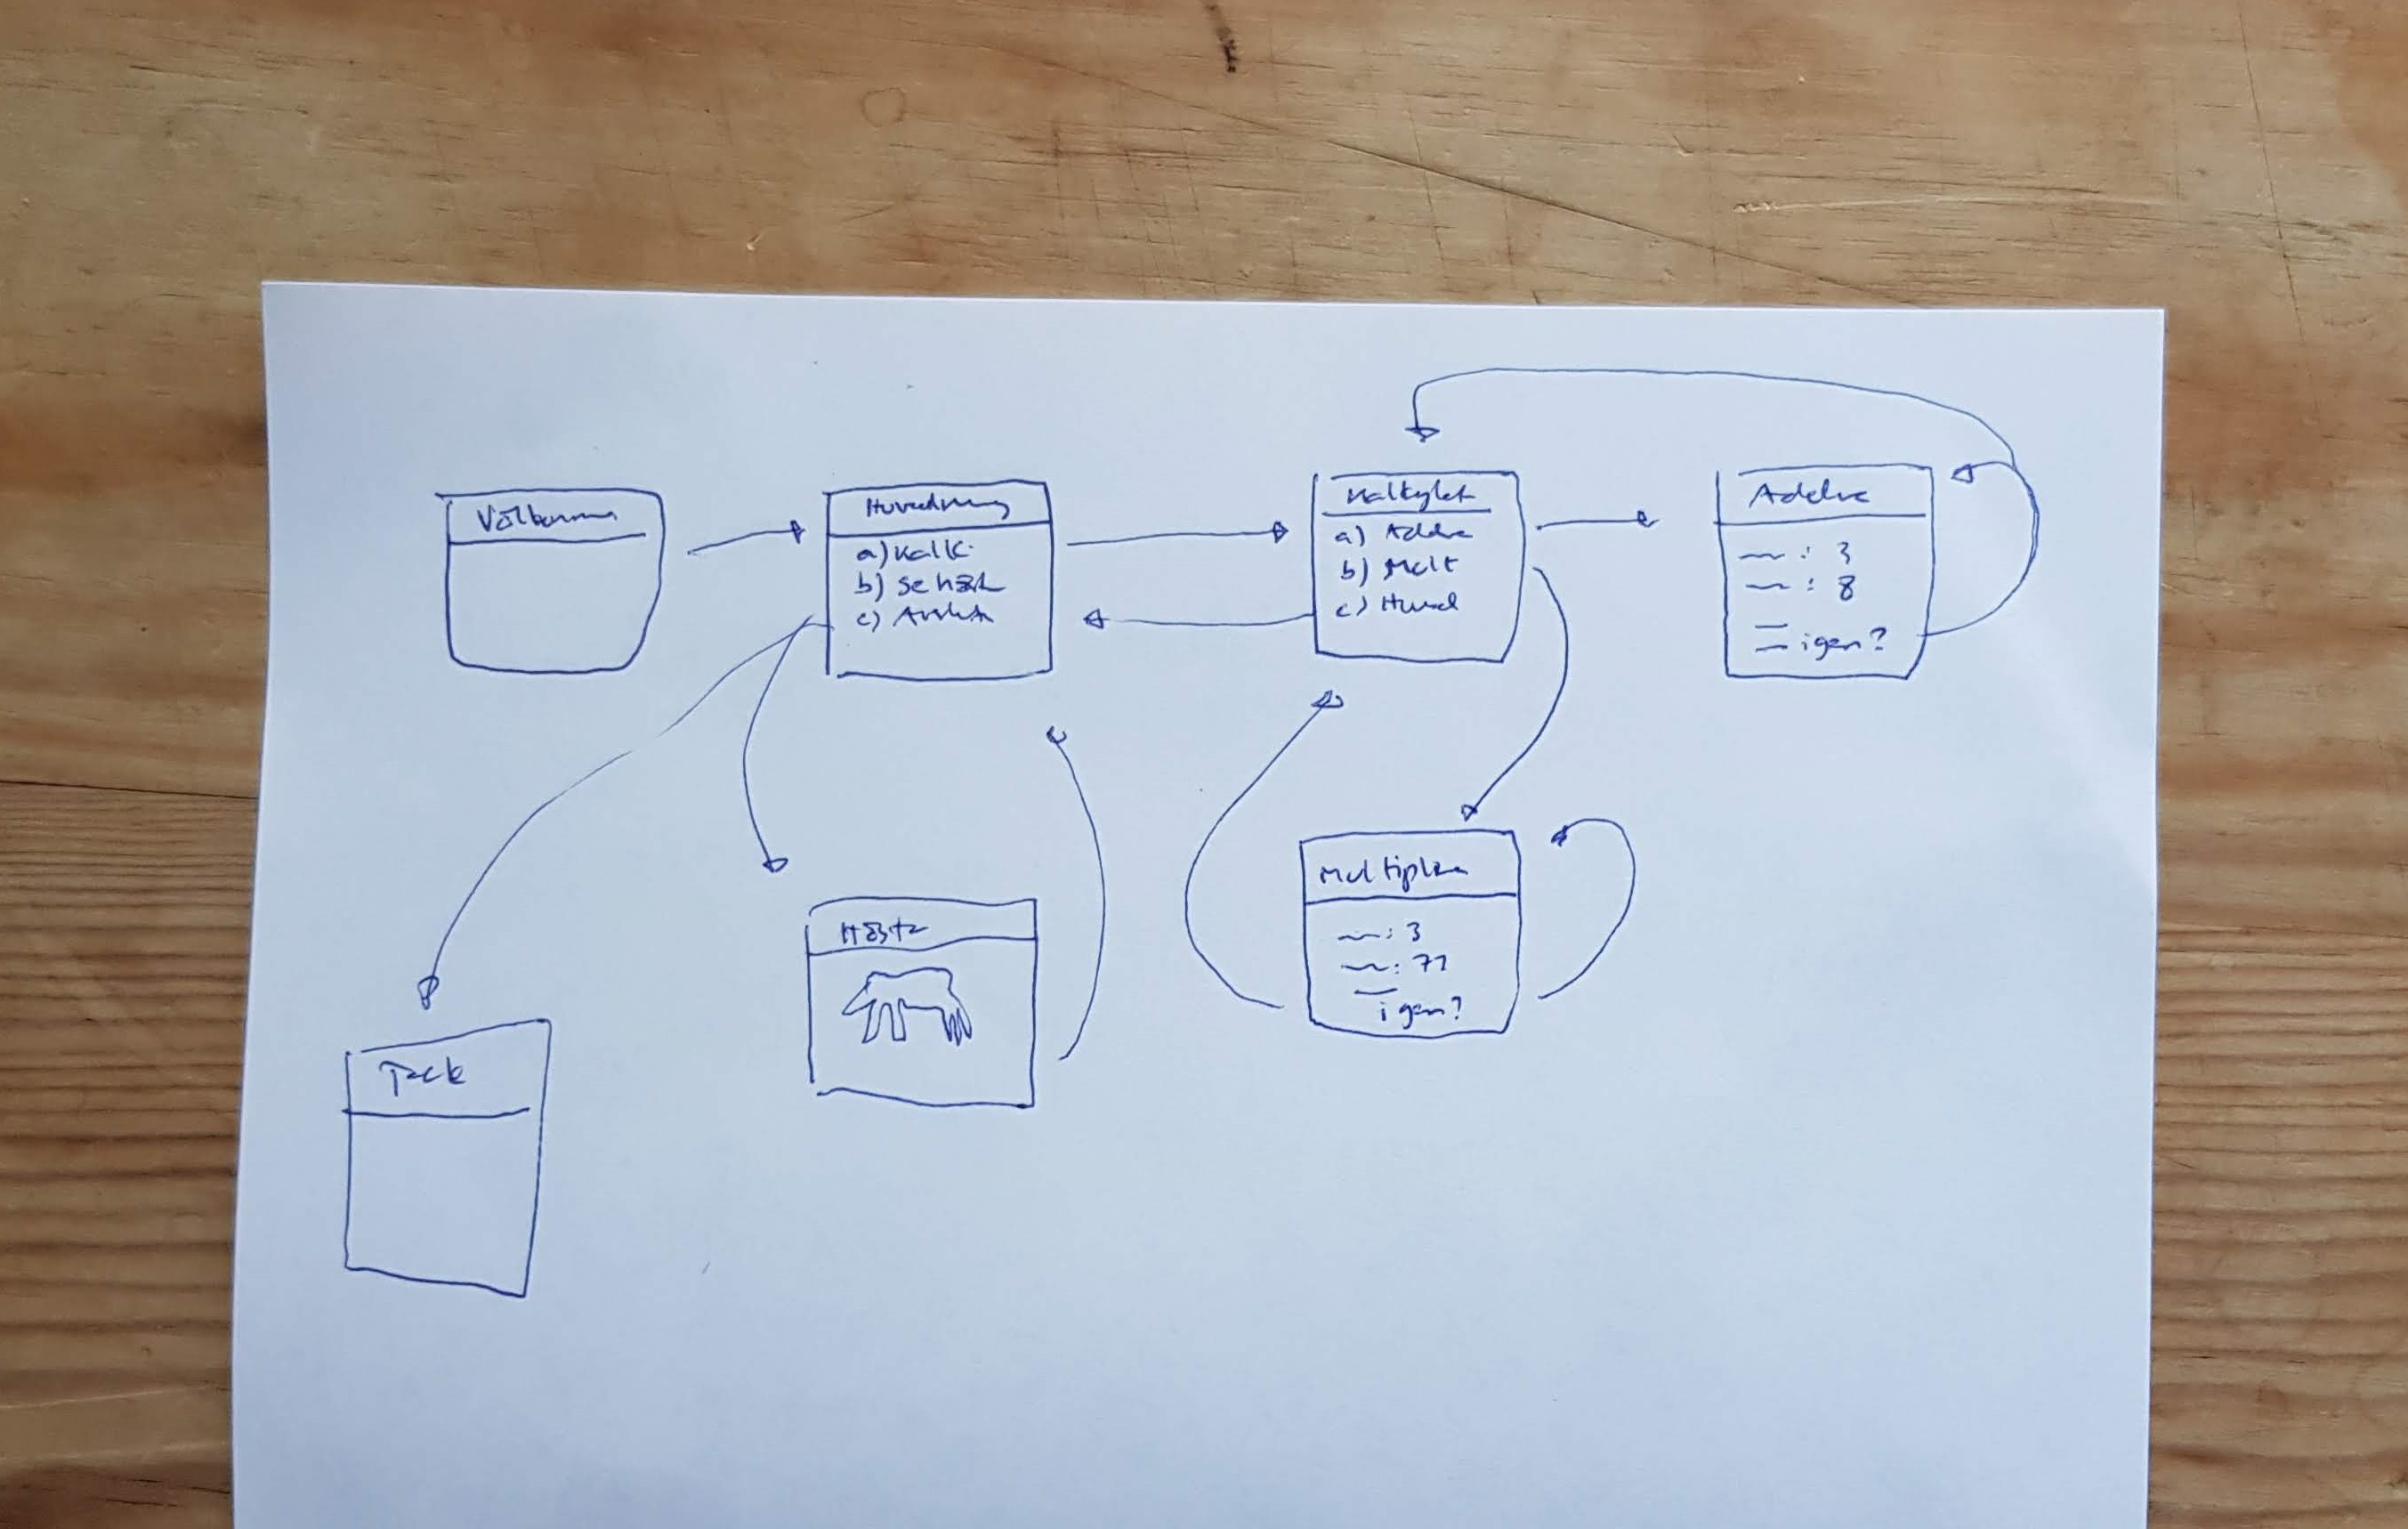 Välkomna
Huvudmeny
a) Kalk.
b) Se häst
c) Avsluta
Kalkylat
a) Addra
b) Mult
c) Huvud
Addra
: 3
: 8
igen?
Multiplra
: 3
: 71
igen?
Hästr
Tack